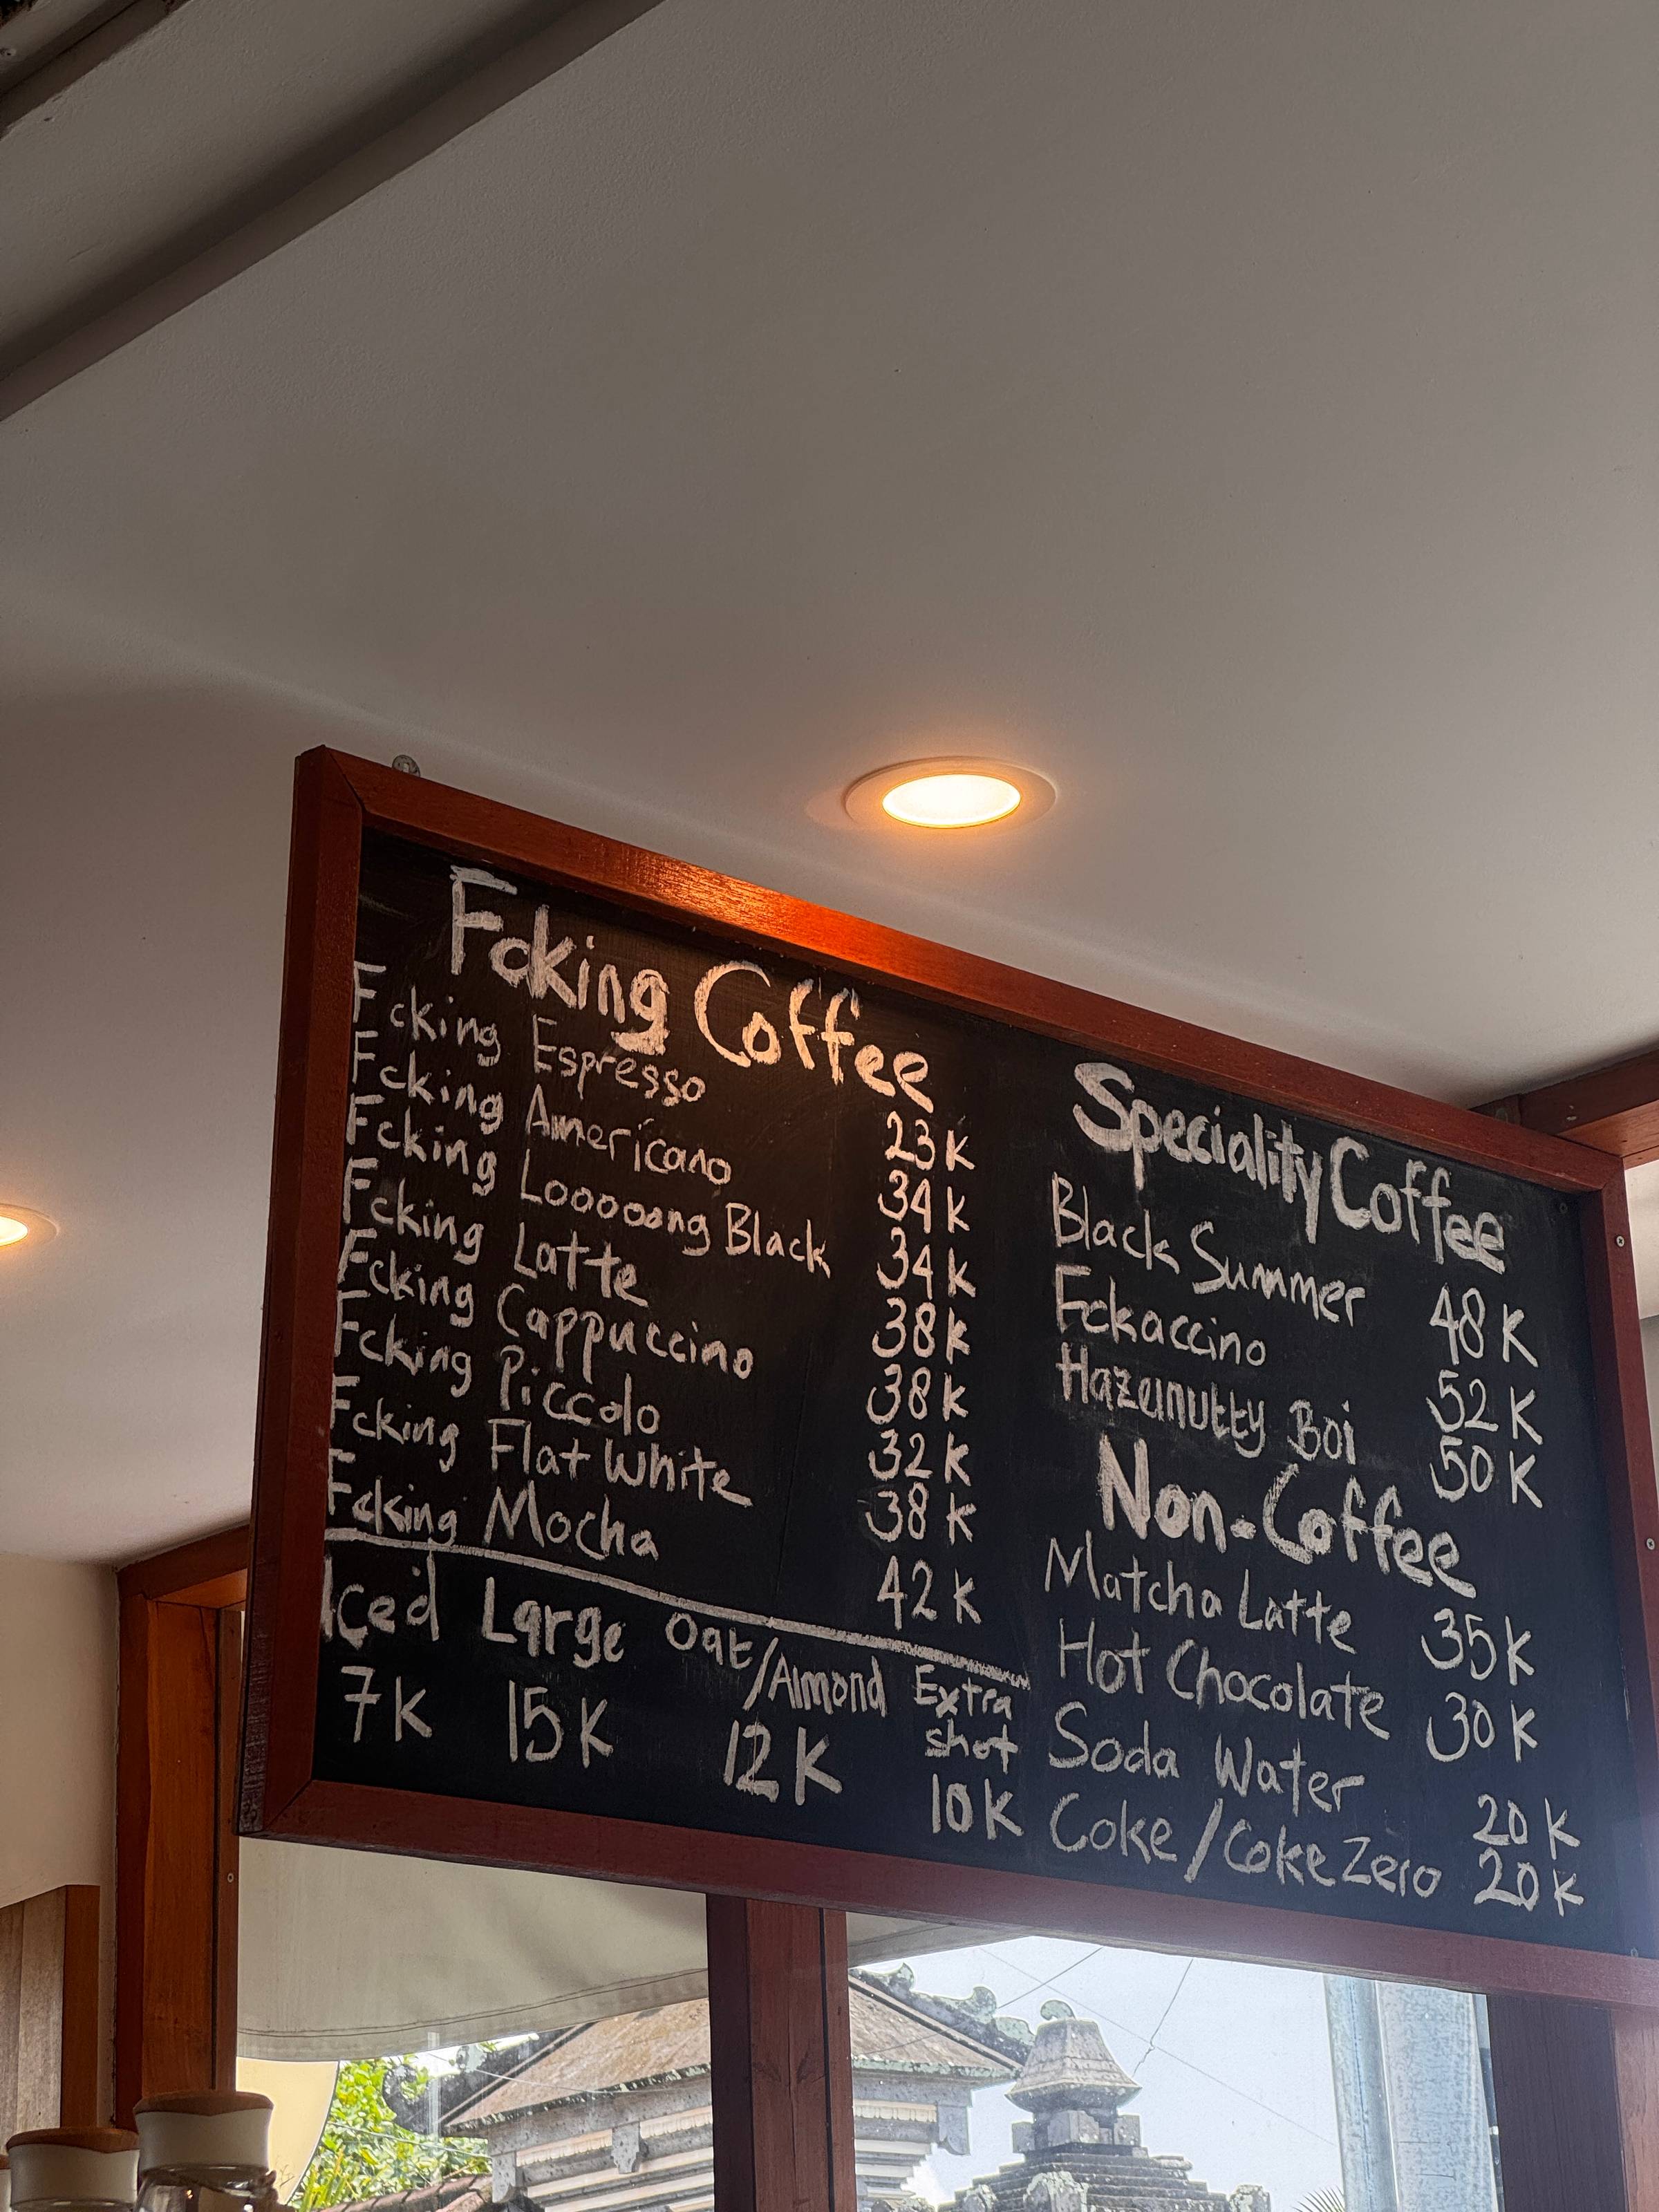 Fcking Coffee
Fcking Espresso 23K
Fcking Americano 34K
Fcking Looooong Black 34K
Fcking Latte 38K
Fcking Cappuccino 38K
Fcking Piccolo 32K
Fcking Flat White 38K
Fcking Mocha 42K
Iced Large Oat/Almond Extra shot
7K 15K 12K 10K
Speciality Coffee
Black Summer 48K
Fckaccino 52K
Hazelnutty Boi 50K
Non-Coffee
Matcha Latte 35K
Hot Chocolate 30K
Soda Water 20K
Coke/Coke Zero 20K